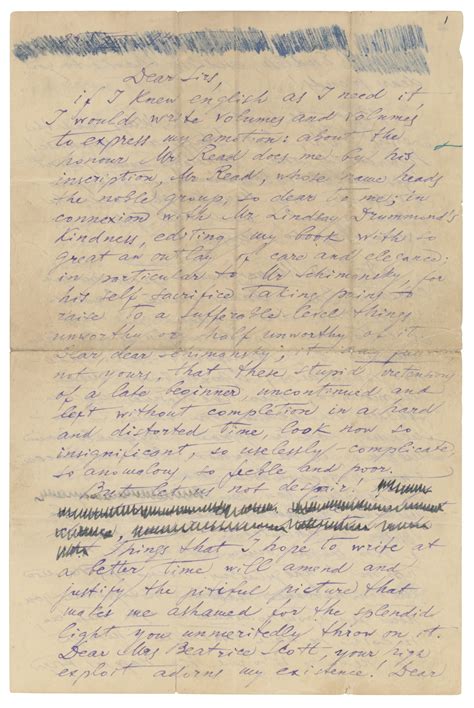 1
Dear Sirs,
if I knew english as I need it,
I would write volumes and volumes
to express my emotion: about the
honour Mr Read does me by his
inscription, Mr Read, whose name heads
the noble group, so dear to me; in
connexion with Mr Lindsay Drummond's
Kindness, editing my book with so
great an outlay of care and elegance;
in particular to Mr Schimansky, for
his self-sacrifice taking pains to
raise to a sufferable level things
unworthy or half unworthy of it.
Dear dear Schimansky; it
not yours, that these stupid
of a late beginner, uncontinued and
left without completion in a hard
and distorted time, look now so
insignificant, so uselessly-complicate,
so anomalous, so feeble and poor.
But let us not despair!
Things that I hope to write at
a better time will amend and
justify the pitiful picture that
makes me ashamed for the splendid
light you unmeritedly throw on it.
Dear Mrs Beatrice Scott, your
exploit adorns my existence! Dear